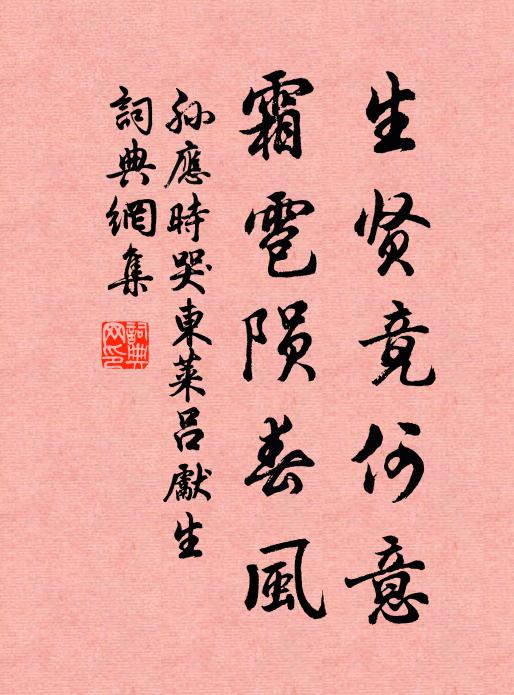 生贤竟何意
霜雹陨春風
孙應時哭東莱吕獻生
詞典網集
詞典网印